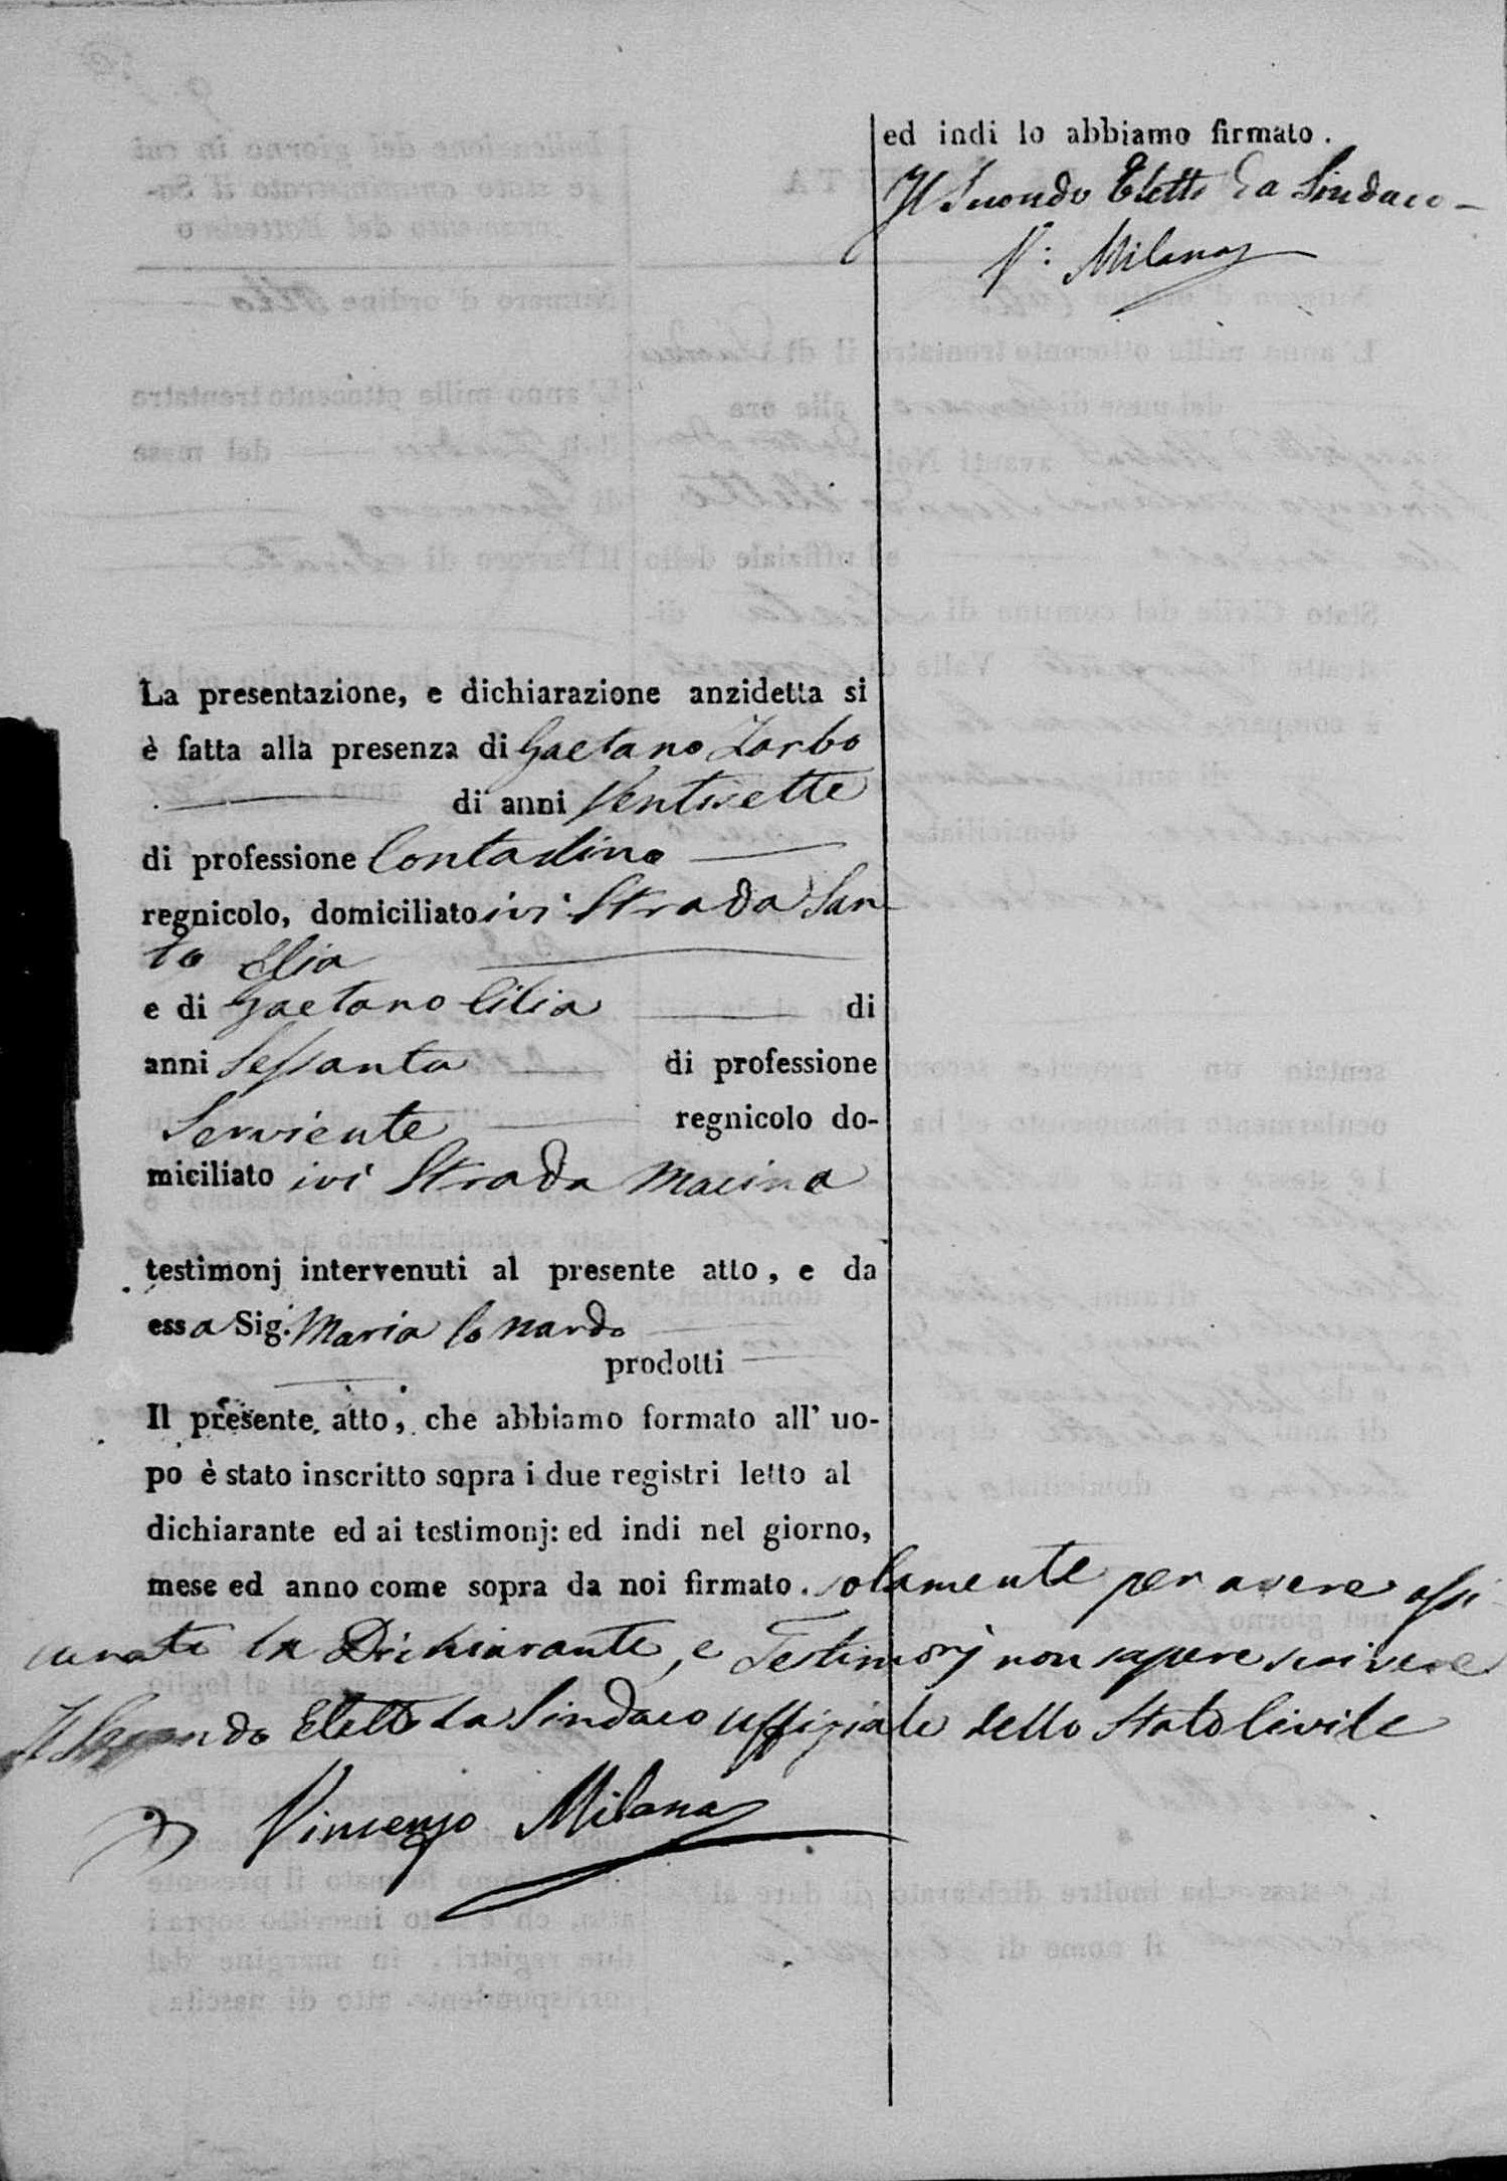 La presentazione, e dichiarazione anzidetta si
è fatta alla presenza di Gaetano Zarbo
di anni Ventisette
di professione Contadino
regnicolo, domiciliato ivi Strada San
to Elia
e di Gaetano Cilia di
anni Sessanta di professione
Serviente regnicolo do-
miciliato ivi Strada Macina
testimonj intervenuti al presente atto, e da
essa Sig. Maria lo Nardo
prodotti
Il presente atto, che abbiamo formato all' uo-
po è stato inscritto sopra i due registri letto al
dichiarante ed ai testimonj: ed indi nel giorno,
mese ed anno come sopra da noi firmato. solamente per avere assi
curato la Dichiarante, e Testimonj non sapere scrivere
Il Secondo Eletto da Sindaco uffiziale dello Stato Civile
Vincenzo Milana
ed indi lo abbiamo firmato.
Il Secondo Eletto da Sindaco
V: Milana